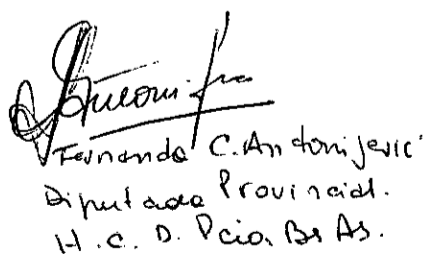 Fernanda C. Antonijevic'
Diputada Provincial.
H.C.D. Pcia. Bs As.